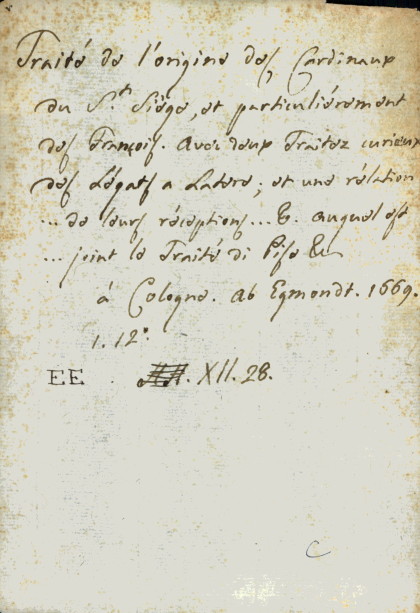 Traité de l'origine des Cardinaux
du St. Siége, et particuliérement
des François. Avec deux Traitez curieux
des Légats a Latere; et une rélation
... de leurs réceptions ... &. auquel est
... joint le Traité di Pise &
à Cologne. Ab Egmondt. 1669.
1. 12°.
EE . XII. 28.
C